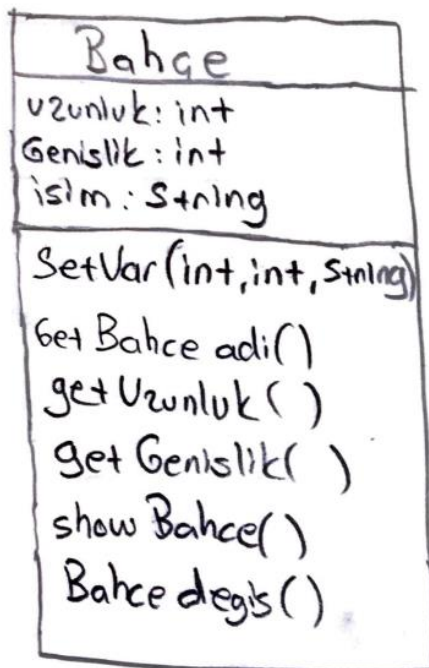 Bahçe
uzunluk: int
Genislik: int
isim: String
SetVar(int,int,String)
Get Bahce adi()
get Uzunluk( )
get Genislik( )
show Bahce()
Bahce degis()